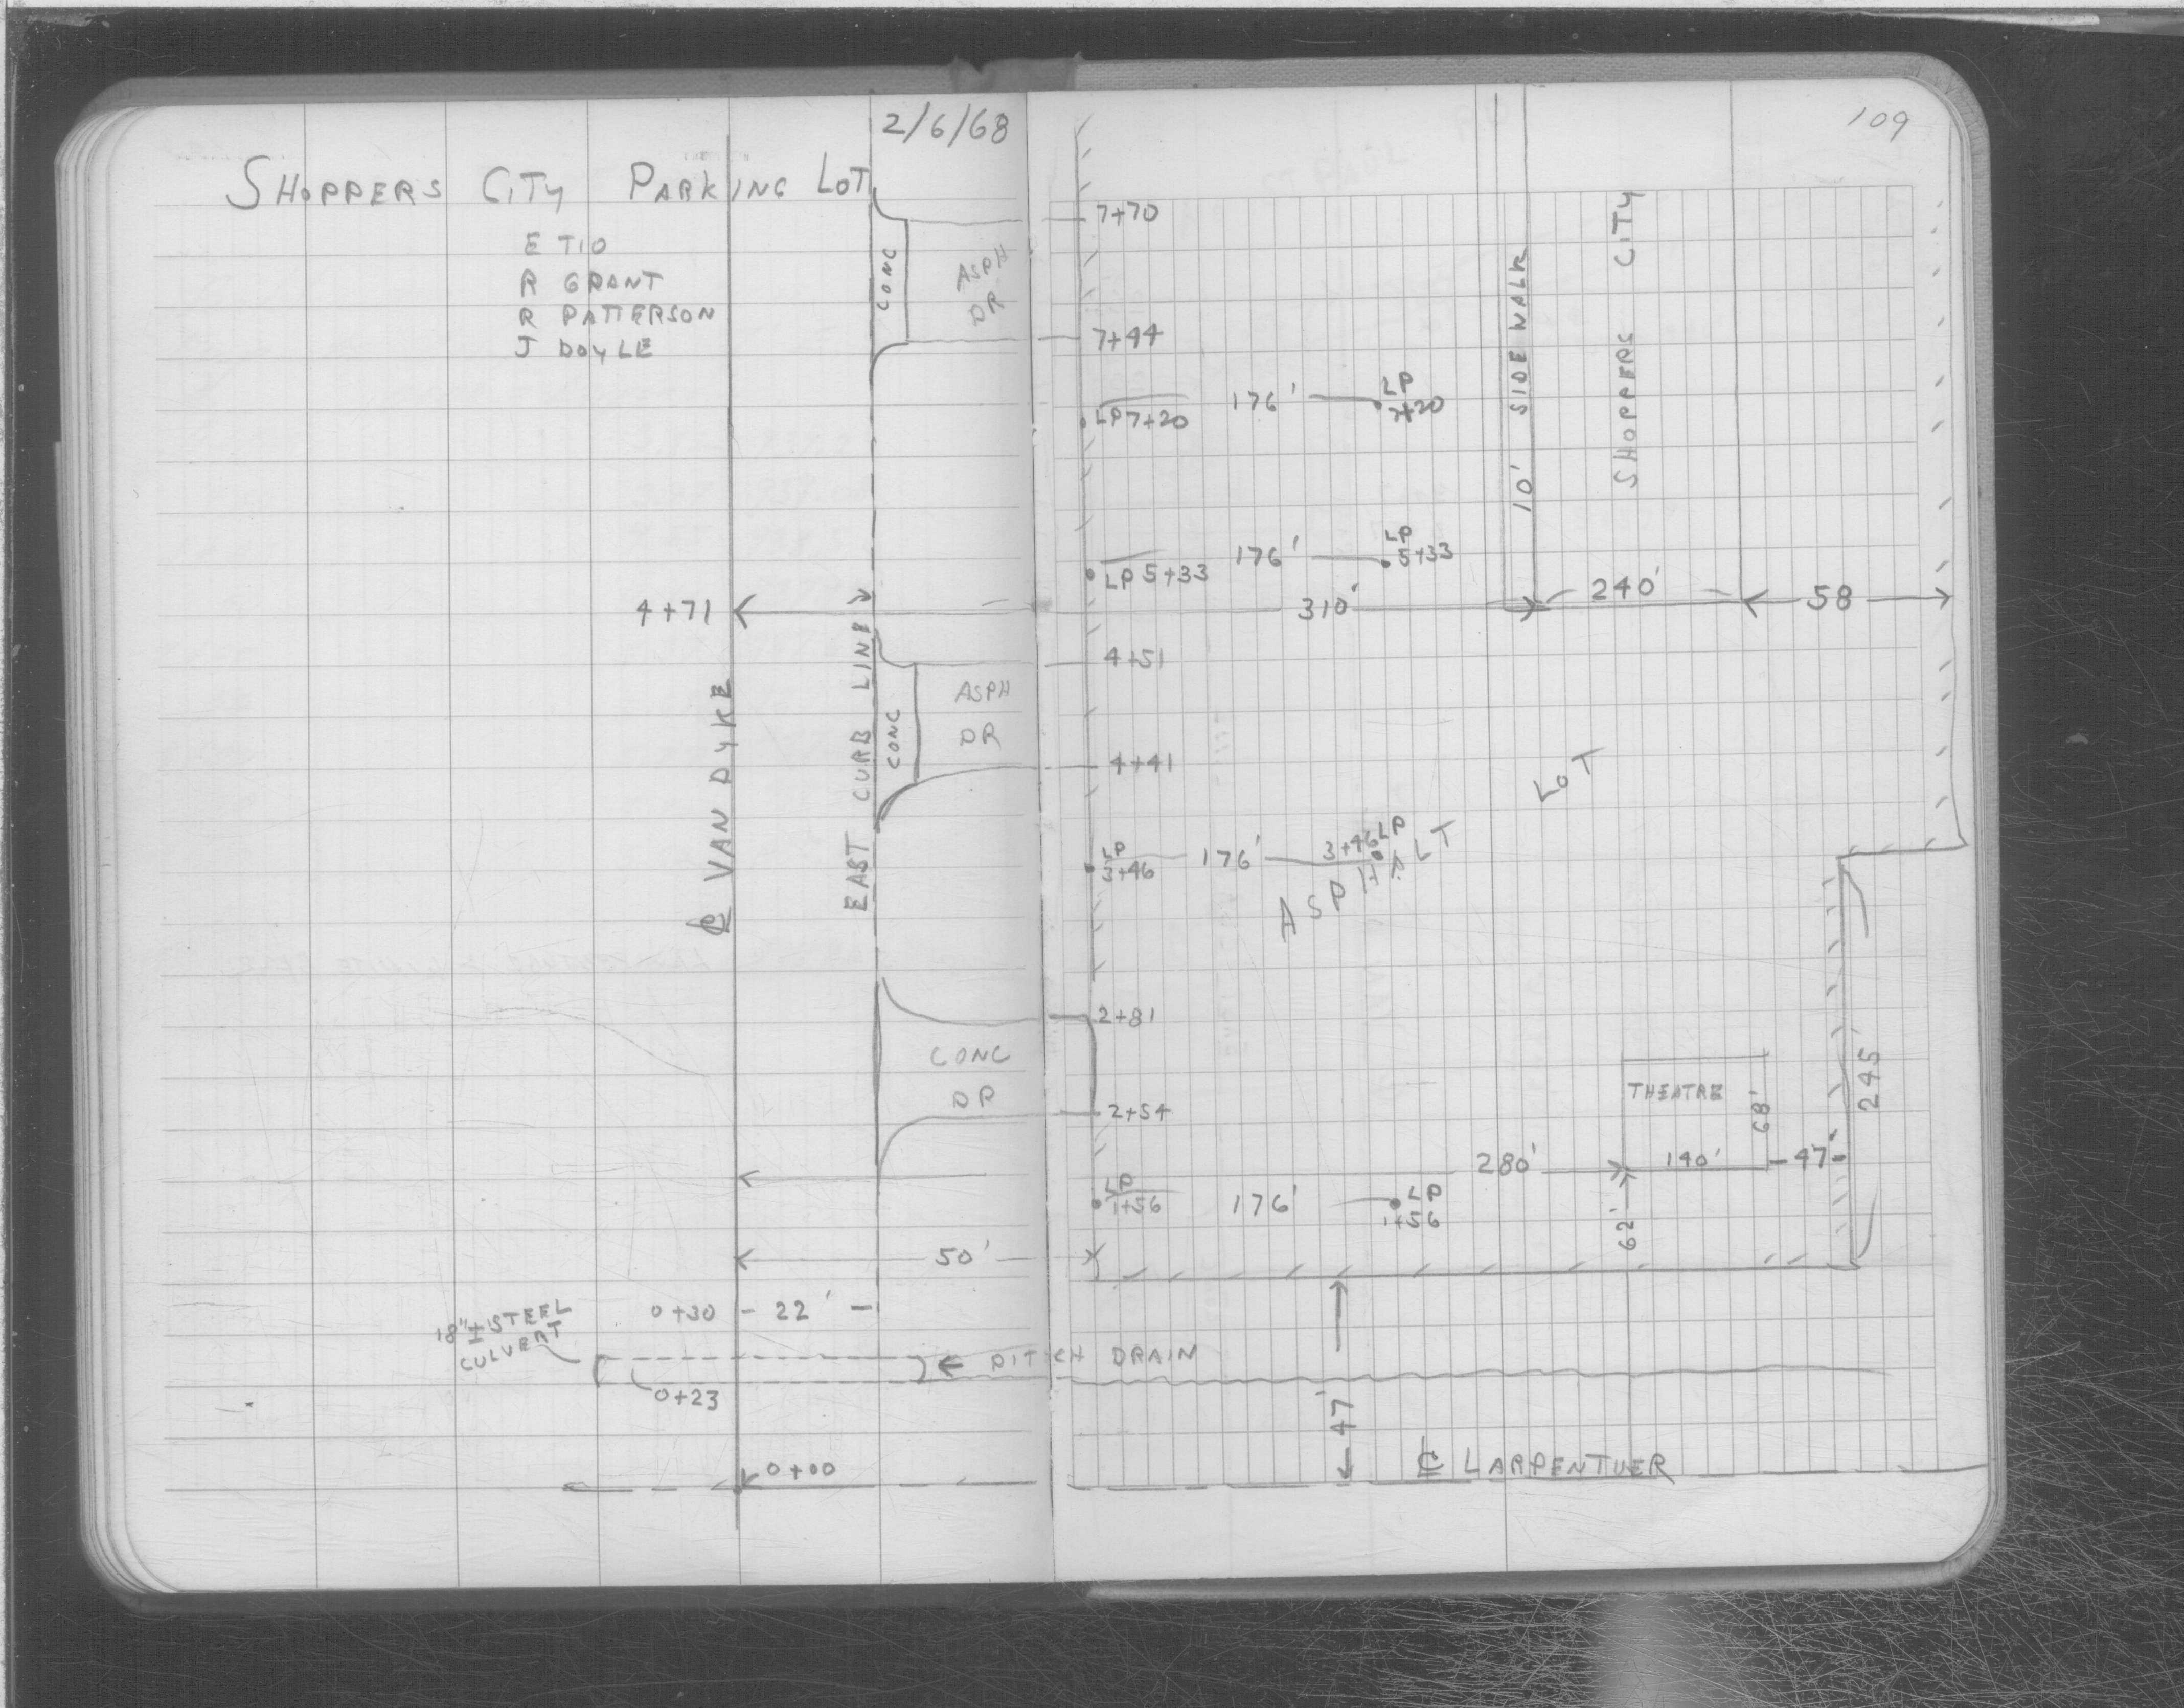 2/6/68
109
SHOPPERS CITY PARKING LOT
E TIO
R GRANT
R PATTERSON
J DOYLE
7+70
CONC
ASPH
DR
7+44
LP 7+20
176'
LP
7+20
10' SIDE WALK
SHOPPERS CITY
LP 5+33
176'
LP
5+33
4+71
310'
240'
58
4+51
CONC
ASPH
DR
4+41
℄ VAN DYKE
EAST CURB LINE
LP
3+46
176'
3+46 LP
ASPHALT LOT
2+81
CONC
DR
2+54
THEATRE
68'
245'
280'
140'
47'
LP
1+56
176'
LP
1+56
62'
50'
0+30
22'
18"± STEEL
CULVERT
DITCH DRAIN
0+23
47'
0+00
℄ LARPENTUER